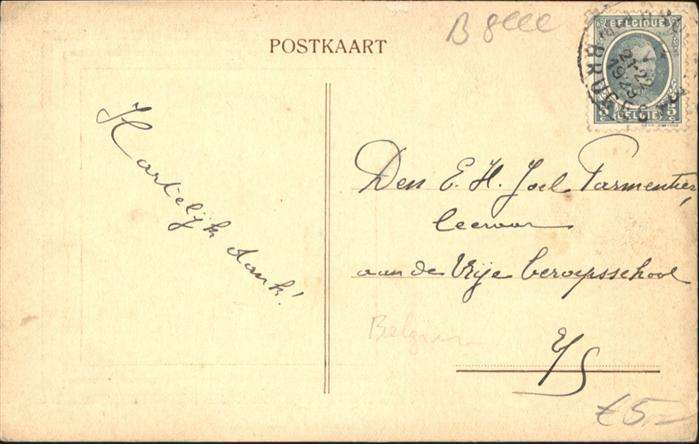 POSTKAART
BELGIQUE
5 5
BELGIË
BRUGES
Hartelijk dank!
Den E. H. Joel Parmentier,
leeraar
aan de Vrije beroepsschool
E/S
Belgien
€5.-